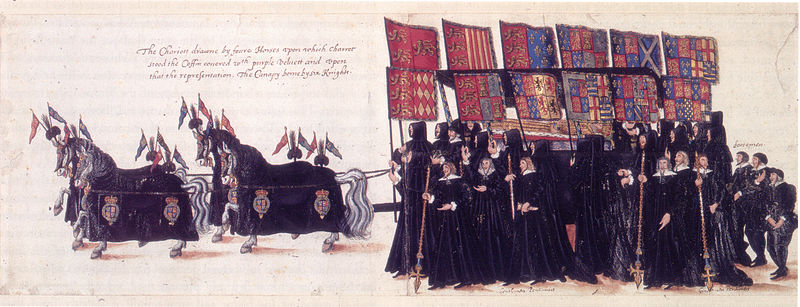 The Chariott drawne by foure Horses vpon which Charret
stood the Coffin couered wth purple Veluett and vpon
that the representation. The Canapy borne by six Knights.
footemen
Gentlemen Pentioners